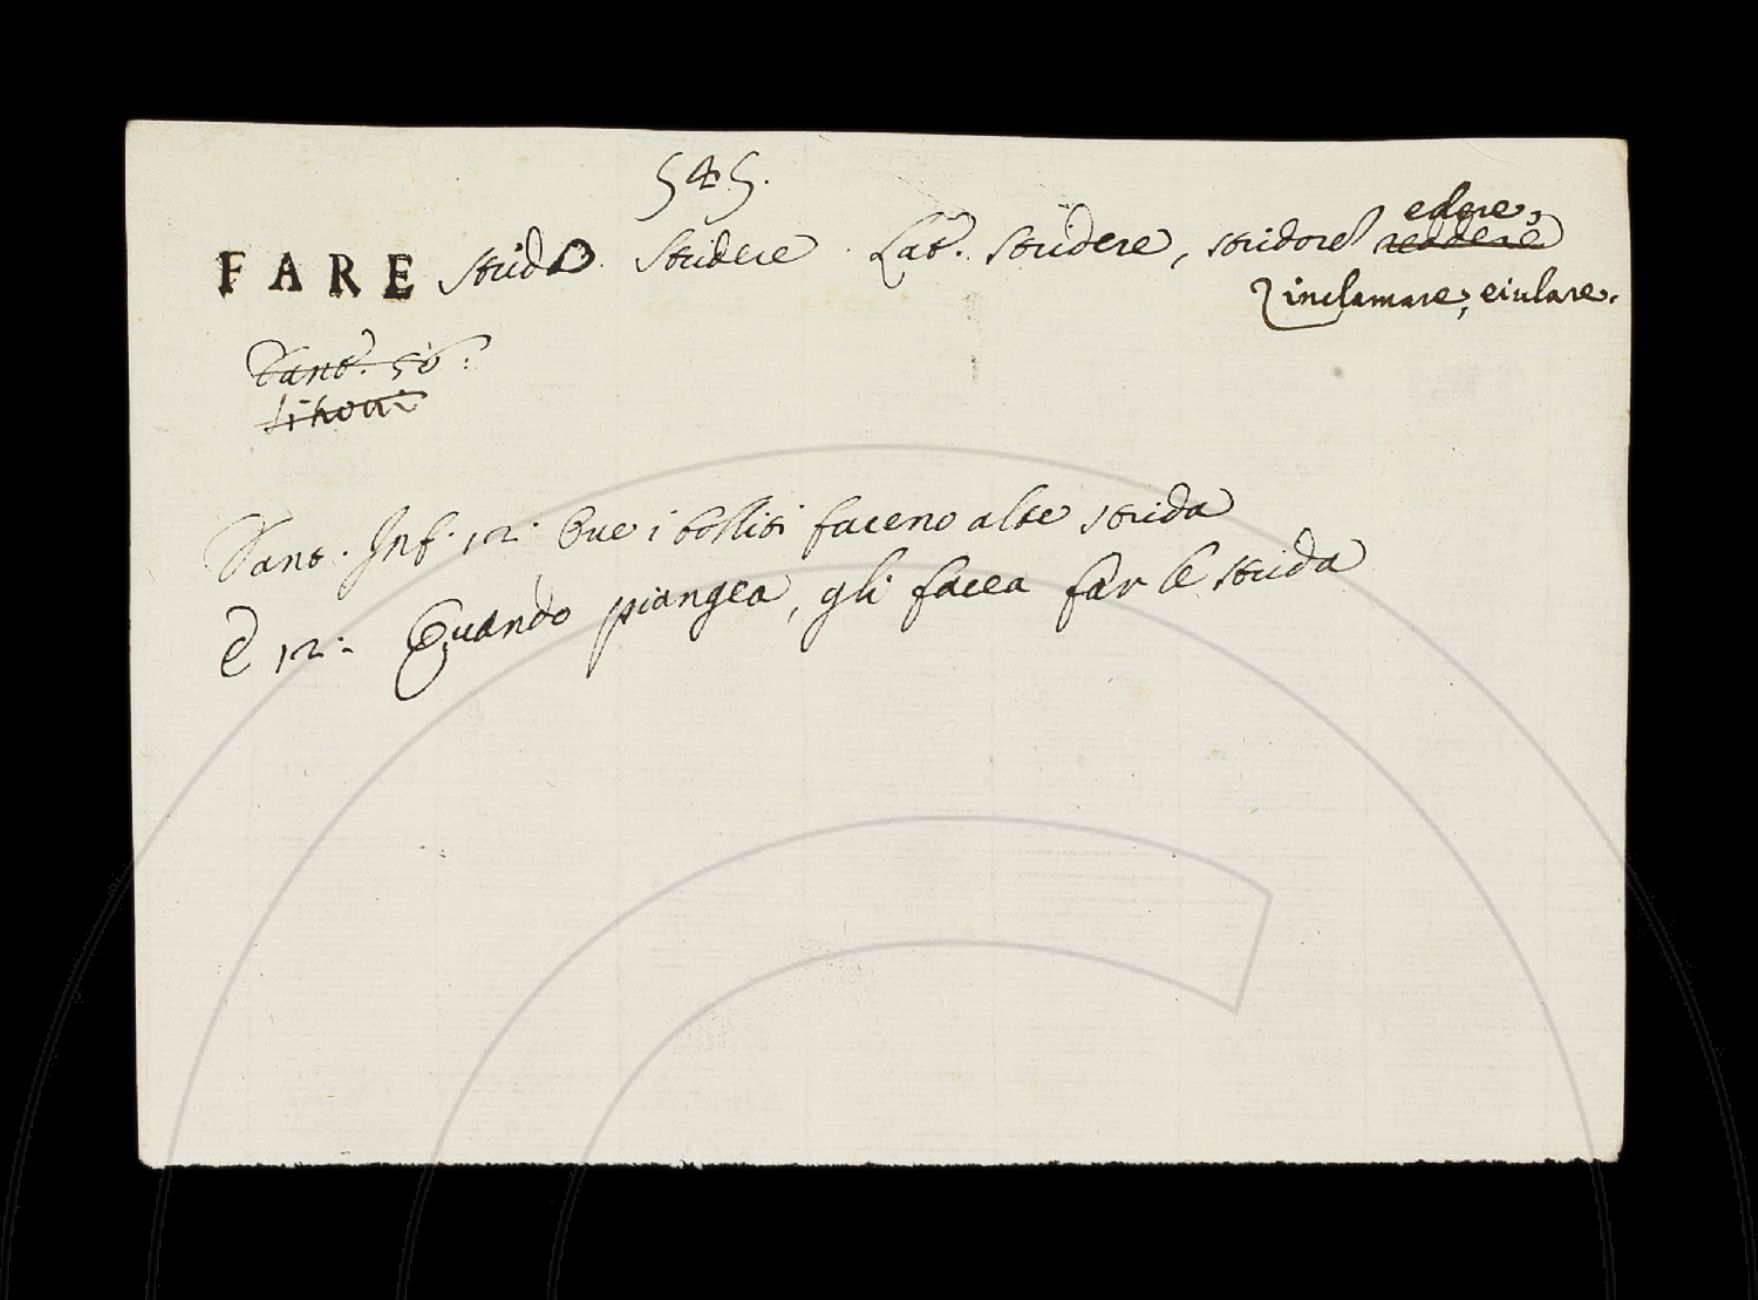 545.
edere,
FARE strida. Stridere. Lat. stridere, stridore reddere
inclamare, eiulare.
Dant. 56.
Dant. Inf. 12. Ove i bolliti faceno alte strida
E 12. Quando piangea, gli facea far le strida